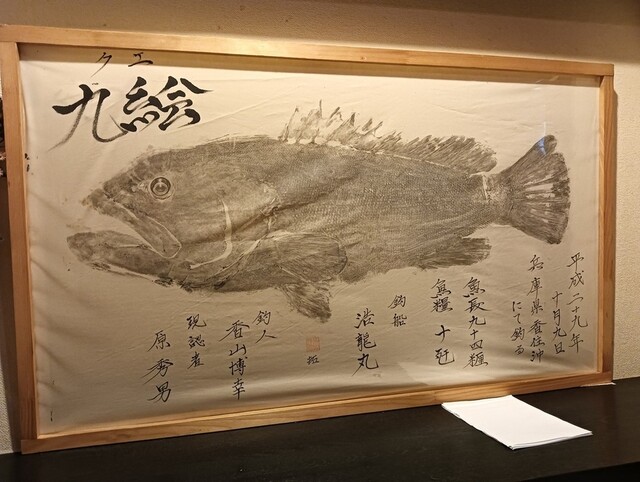 クエ
九絵
平成二十九年
十月九日
兵庫県香住沖
にて釣る
魚長九十四糎
魚糧十瓩
釣船
浩龍丸
拓
釣人
香山博幸
現認者
原秀男